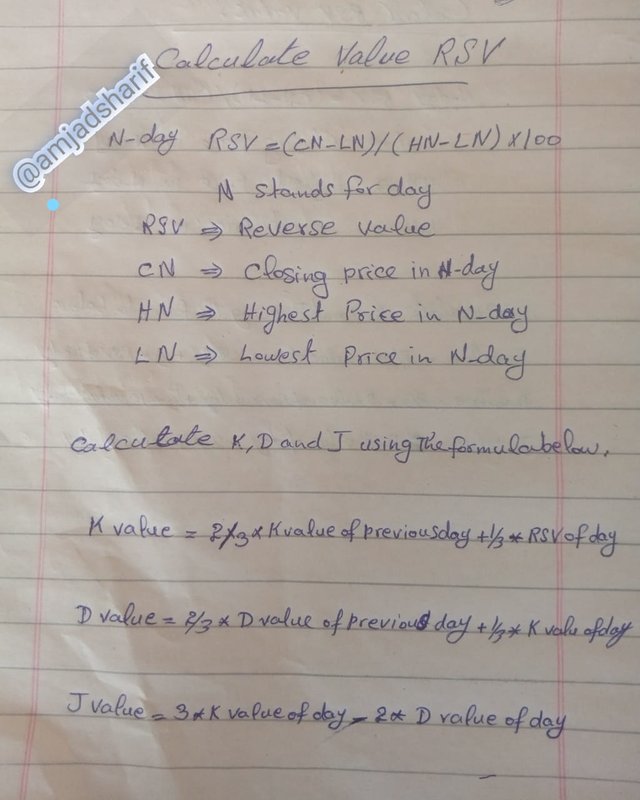 Calculate Value RSV
@amjadsharif
N-day RSV = (CN-LN)/(HN-LN) x100
N stands for day
RSV ⇒ Reverse value
CN ⇒ Closing price in N-day
HN ⇒ Highest Price in N-day
LN ⇒ Lowest Price in N-day
Calculate K, D and J using The formula below.
K value = 2/3 * K value of previous day + 1/3 * RSV of day
D value = 2/3 * D value of previous day + 1/3 * K value of day
J value = 3 * K value of day - 2 * D value of day